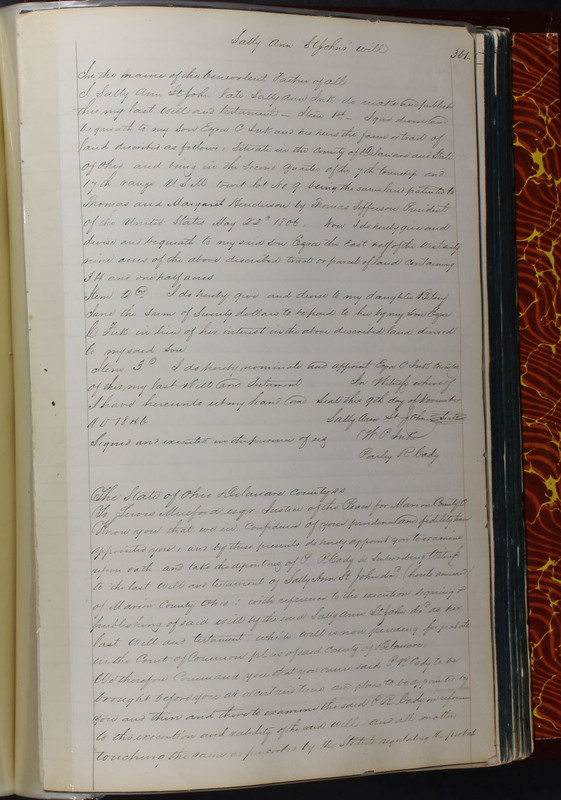 Sally Ann StJohns' will
361
In the name of the benevolent Father of all
I Sally Ann StJohn late Sally Ann do make and publish
this my last will and testament. Item 1st I give devise and
bequeath to my son Ezra C and his heirs the farm or tract of
land described as follows, situate in the County of Delaware and State
of Ohio and being in the second quarter of the 7th township and
17th range U S M to wit lot No 9 being the same land patented to
Thomas and Margaret Henderson by Thomas Jefferson President
of the United States May 22d 1806. Now I do hereby give and
devise and bequeath to my said son Ezra the East half of the
nine acres of the above described tract or parcel of land containing
34 and one half acres
Item 2d I do hereby give and devise to my daughter Betsey
Jane the sum of dollars to be paid to her by my son Ezra
C in lieu of her interest in the above described land devised
to my said son
Item 3d I do hereby nominate and appoint Ezra C
of this my last Will and Testament In Witness whereof
I have hereunto set my hand and seal this 9th day of
A D 1846
Sally Ann St John
Signed and executed in the presence of us W. P.
Parley R. Cady
The State of Ohio Delaware County ss
To Lewis esqr Justice of the Peace for Marion County O
Know you that we in confidence of your prudence and fidelity have
appointed you and by these presents do hereby appoint you to examine
upon oath and take the deposition of P. R Cady a subscribing witness
to the last will and testament of Sally Ann St John decd (late
of Marion County Ohio) with reference to the execution signing &
publishing of said will by the said Sally Ann StJohn decd as her
last will and testament which will is now pending for probate
in the Court of Common pleas of said County of Delaware.
We therefore command you that you cause said P R Cady to be
brought before you at a certain time and place to be appointed by
you and then and there to examine the said P R. Cady in reference
to the execution and validity of the said will and all matters
touching the same as prescribed by the Statute regulating the probate